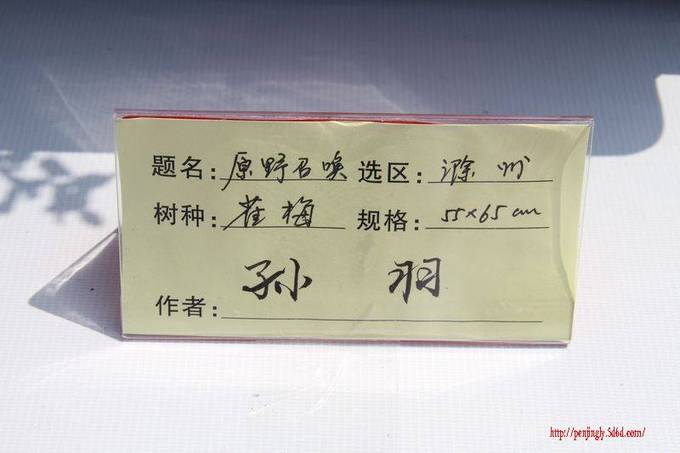 题名: 原野召唤 选区: 滁州
树种: 雀梅 规格: 55×65cm
作者: 孙羽
http://penjingly.5d6d.com/